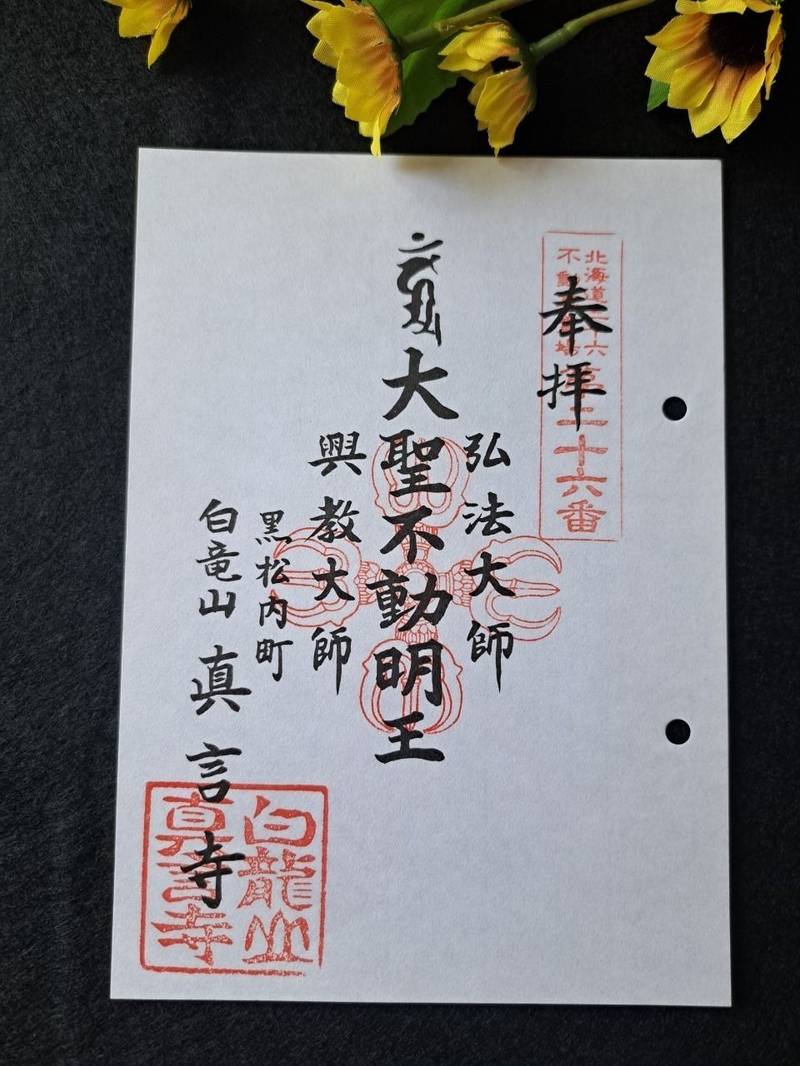 奉拝
北海道三十六
不動霊場
第二十六番
弘法大師
大聖不動明王
興教大師
黒松内町
白竜山 真言寺
白龍山
真言寺